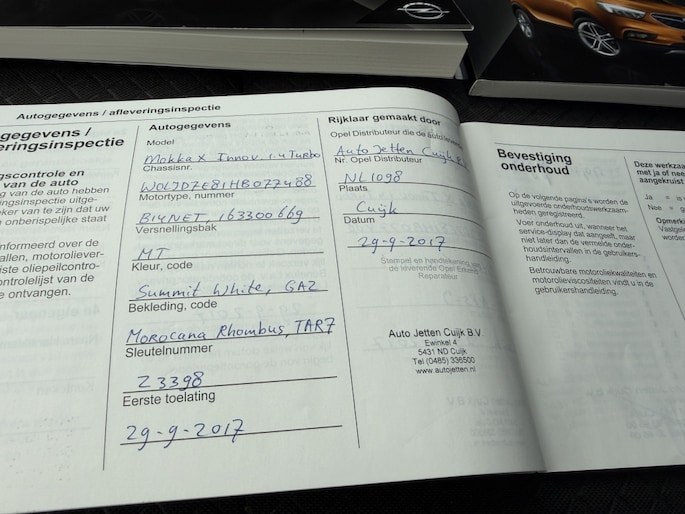 Autogegevens / afleveringsinspectie
gegevens /
eringsinspectie
gscontrole en
van de auto
ng van de auto hebben
eringsinspectie uitge-
eker van te zijn dat uw
n onberispelijke staat
nformeerd over de
allen, motoroliever-
iste oliepeilcontro-
ontrolelijst van de
e ontvangen.
Autogegevens
Model
Mokka X Innov. 1.4 Turbo
Chassisnr.
W0LJD7E81HB077488
Motortype, nummer
B14NET, 16330066g
Versnellingsbak
MT
Kleur, code
Summit White, GAZ
Bekleding, code
Morocana Rhombus, TAR7
Sleutelnummer
Z3398
Eerste toelating
29-9-2017
Rijklaar gemaakt door
Opel Distributeur die de auto levert
Auto Jetten Cuijk
Nr. Opel Distributeur
NL1098
Plaats
Cuijk
Datum
29-9-2017
Stempel en handtekening van
de leverende Opel Erkend
Reparateur
Auto Jetten Cuijk B.V.
Ewinkel 4
5431 ND Cuijk
Tel (0485) 336500
www.autojetten.nl
Bevestiging
onderhoud
Op de volgende pagina's worden de
uitgevoerde onderhoudswerkzaam-
heden geregistreerd.
Voer onderhoud uit, wanneer het
service-display dat aangeeft, maar
niet later dan de vermelde onder-
houdsintervallen in de gebruikers-
handleiding.
Betrouwbare motoroliekwaliteiten en
motorolieviscositeiten vindt u in de
gebruikershandleiding.
Deze werkzaa
met ja of nee
aangekruist
Ja = is
Nee =
Opmerki
Vastgele
worden